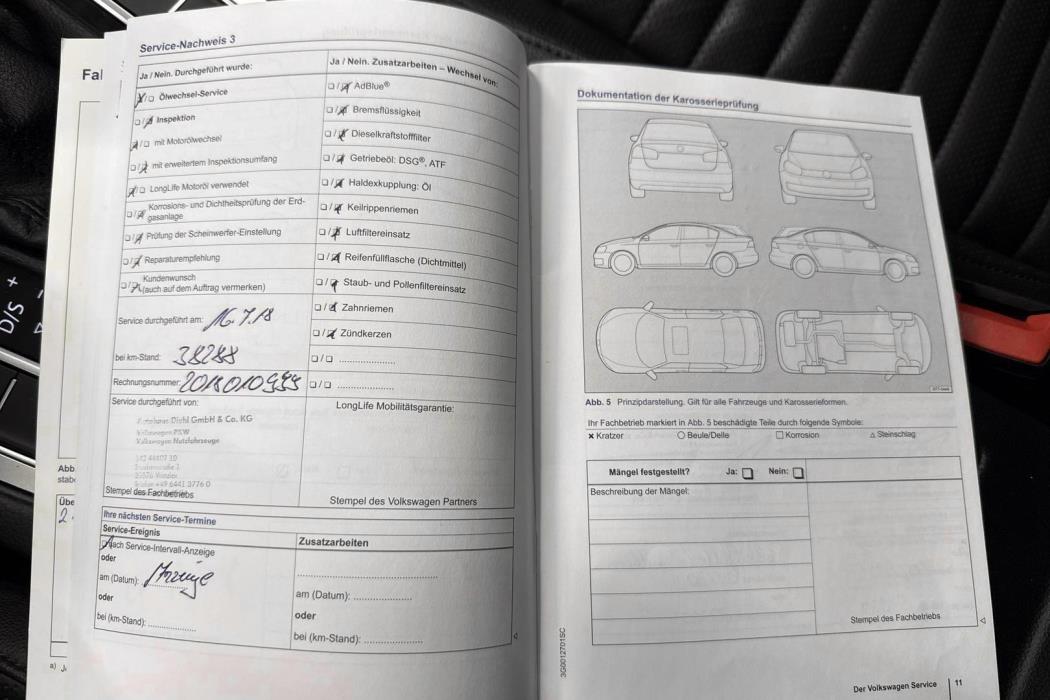 Fal
Abb
stab
Übe
2.
a)
D/S +
Service-Nachweis 3
Ja / Nein. Durchgeführt wurde:
☒/☐ Ölwechsel-Service
☐/☒ Inspektion
☒/☐ mit Motorölwechsel
☐/☒ mit erweitertem Inspektionsumfang
☒/☐ LongLife Motoröl verwendet
☐/☒ Korrosions- und Dichtheitsprüfung der Erd-
gasanlage
☐/☒ Prüfung der Scheinwerfer-Einstellung
☐/☒ Reparaturempfehlung
☐/☒ Kundenwunsch
(auch auf dem Auftrag vermerken)
Service durchgeführt am: 16.7.18
bei km-Stand: 38288
Rechnungsnummer: 2018010955
Service durchgeführt von:
Diehl GmbH & Co. KG
Volkswagen PKW
Volkswagen Nutzfahrzeuge
Stempel des Fachbetriebs
Ja / Nein. Zusatzarbeiten – Wechsel von:
☐/☒ AdBlue®
☐/☒ Bremsflüssigkeit
☐/☒ Dieselkraftstofffilter
☐/☒ Getriebeöl: DSG®, ATF
☐/☒ Haldexkupplung: Öl
☐/☒ Keilrippenriemen
☐/☒ Luftfiltereinsatz
☐/☒ Reifenfüllflasche (Dichtmittel)
☐/☒ Staub- und Pollenfiltereinsatz
☐/☒ Zahnriemen
☐/☒ Zündkerzen
☐/☐ ......................
☐/☐ ......................
LongLife Mobilitätsgarantie:
Stempel des Volkswagen Partners
Ihre nächsten Service-Termine
Service-Ereignis
☒ Nach Service-Intervall-Anzeige
oder
am (Datum): Anzeige
oder
bei (km-Stand): ..................
Zusatzarbeiten
......................................
am (Datum): ......................
oder
bei (km-Stand): ......................
Dokumentation der Karosserieprüfung
Abb. 5 Prinzipdarstellung. Gilt für alle Fahrzeuge und Karosserieformen.
Ihr Fachbetrieb markiert in Abb. 5 beschädigte Teile durch folgende Symbole:
× Kratzer ○ Beule/Delle □ Korrosion △ Steinschlag
Mängel festgestellt? Ja: ☐ Nein: ☐
Beschreibung der Mängel:
Stempel des Fachbetriebs
3G0012701SC
Der Volkswagen Service 11